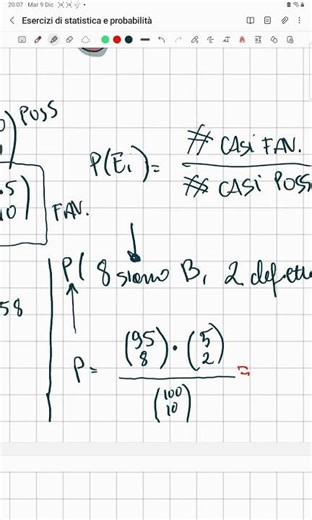 20:07 Mar 9 Dic
Esercizi di statistica e probabilità
POSS
# CASI FAV.
P(Ei) =
# CASI POSS
FAV.
P( 8 siano B, 2 defett
58
P = (95 8) · (5 2) =
(100 10)